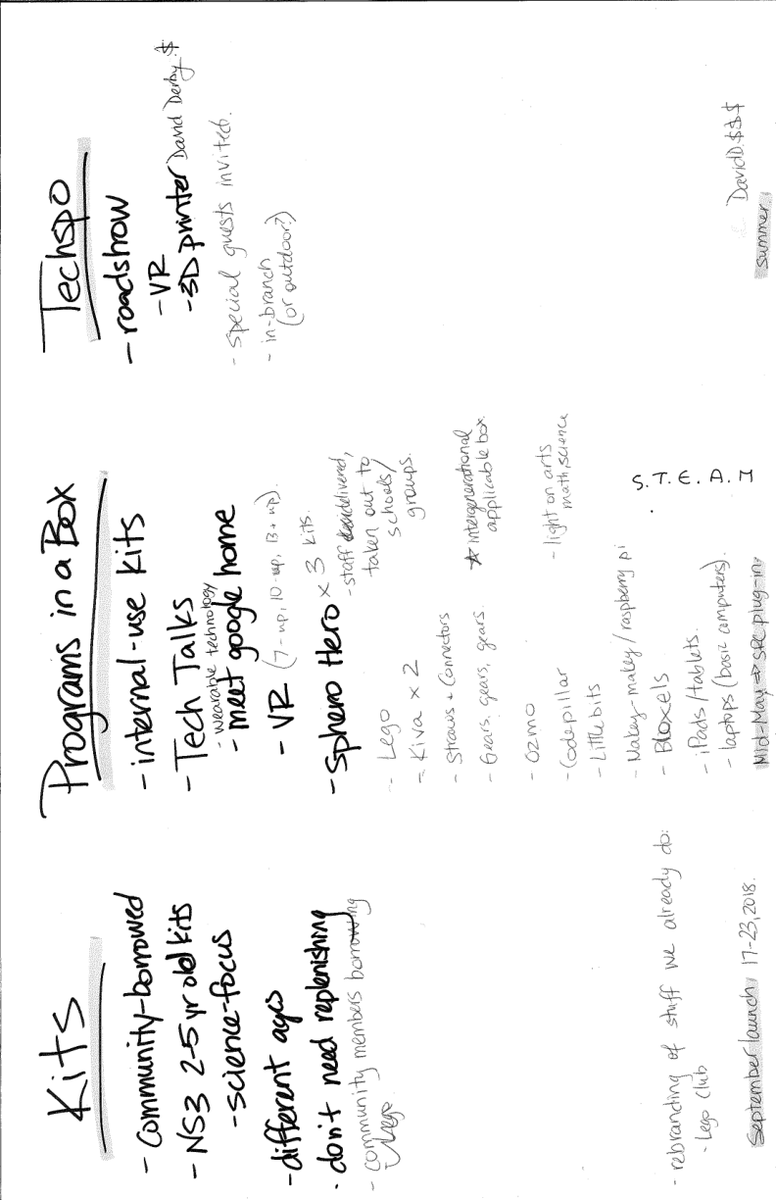 Kits
- Community-borrowed
- NS3 2-5 yr old kits
- science-focus
- different ages
- don't need replenishing
- community members borrowing
Lego
- rebranding of stuff we already do:
- Lego Club
September launch, 17-23, 2018.
Programs in a Box
- internal-use kits
- Tech Talks
- wearable technology
- meet google home
- VR (7-up, 10-up, 13+ up).
- Sphero Hero x 3 kits.
- staff delivered,
taken out to
schools/
groups.
- Lego
- Kiva x 2
- Straws + Connectors
- Gears, gears, gears.
* intergenerational
applicable box.
- Ozmo
- Codepillar
- Littlebits
- light on arts
math, science
- Makey-makey/raspberry pi
- Bloxels
- iPads/tablets.
- laptops (basic computers).
S.T.E.A.M
Mid-May → SRC plug-in,
Techspo
- roadshow
- VR
- 3D printer David Derby $
- special guests invited.
- in-branch
(or outdoor?)
David D. $$$
summer,